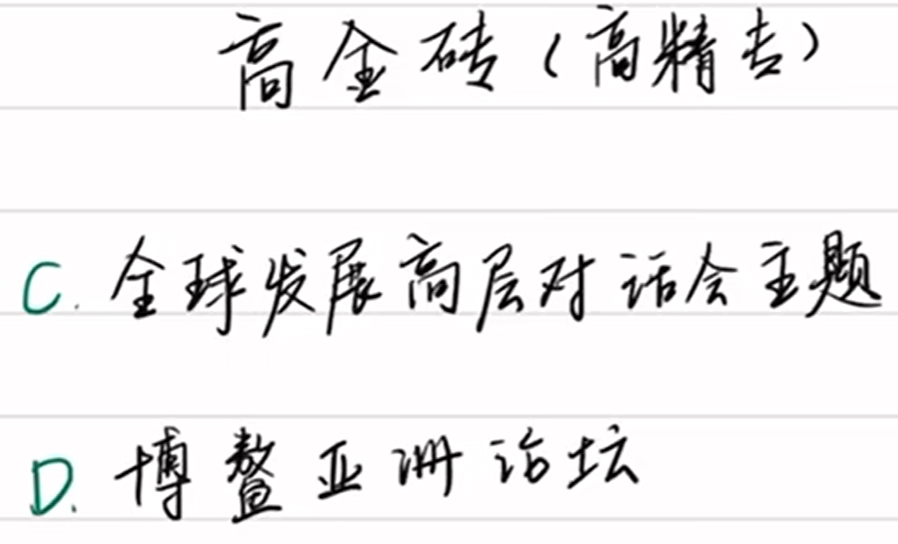 高金砖（高精专）
C. 全球发展高层对话会主题
D. 博鳌亚洲论坛